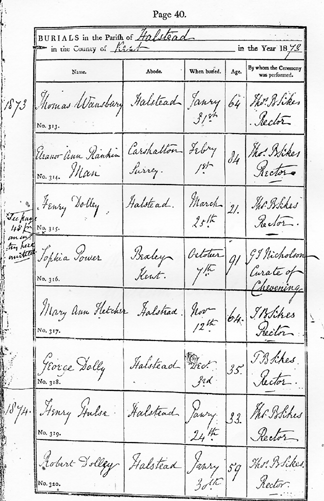 Page 40.
BURIALS in the Parish of Halstead
in the County of Kent in the Year 1873
Name. Abode. When buried. Age. By whom the Ceremony was performed.
1873
Thomas Wansbury Halstead Janry 31st 64 Thos B Sikes Rector
No. 313.
Eleanor Ann Rankin Man Carshalton Surrey. Febry 1st 34 Thos B Sikes Rector
No. 314.
Henry Dolley Halstead. March 21. Thos B Sikes Rector
No. 315.
See page 48 for an entry here omitted
Sophia Power Kent. October 7th 91 G I Nicholson Curate of Chevening
No. 316.
Mary Ann Fletcher Halstead Nov 12th 64. T B Sikes Rector
No. 317.
George Dolly Halstead Decr 3rd 35. T. B Sikes. Rector
No. 318.
1874.
Henry Hulse Halstead Janry 24th 33. Thos B Sikes Rector
No. 319.
Robert Dolley Halstead Janry 30th 59 Thos B Sikes. Rector
No. 320.